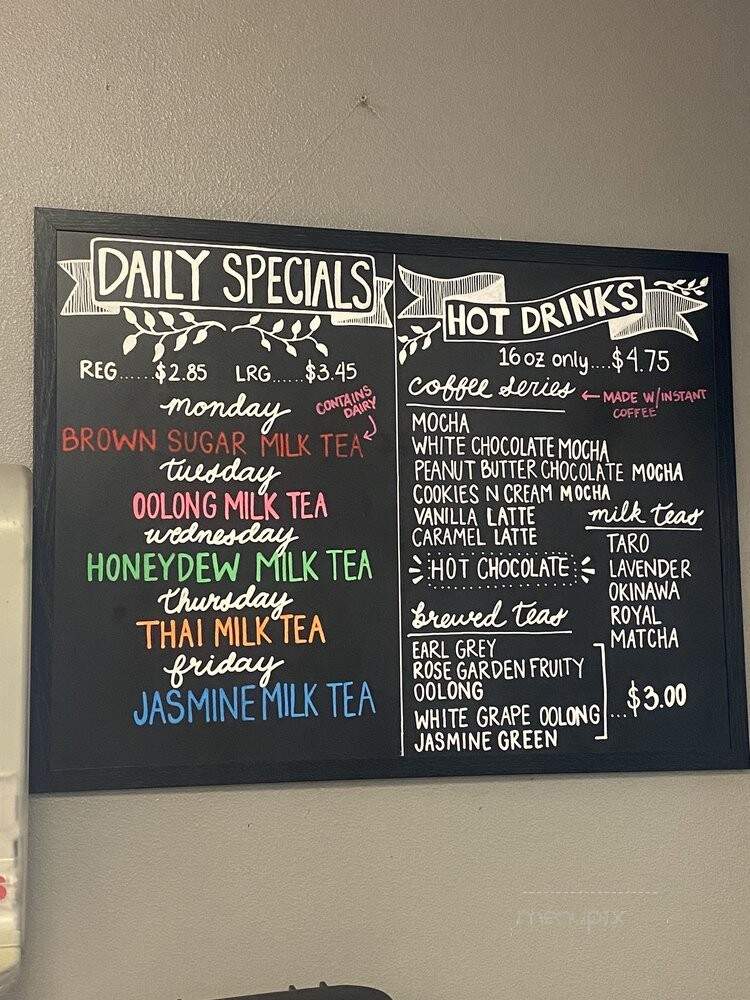 DAILY SPECIALS
REG......$2.85 LRG.....$3.45
monday
CONTAINS
DAIRY
BROWN SUGAR MILK TEA
tuesday
OOLONG MILK TEA
wednesday
HONEYDEW MILK TEA
thursday
THAI MILK TEA
friday
JASMINE MILK TEA
HOT DRINKS
16 oz only....$4.75
coffee series
←MADE W/INSTANT
COFFEE
MOCHA
WHITE CHOCOLATE MOCHA
PEANUT BUTTER CHOCOLATE MOCHA
COOKIES N CREAM MOCHA
VANILLA LATTE
CARAMEL LATTE
HOT CHOCOLATE
milk teas
TARO
LAVENDER
OKINAWA
ROYAL
MATCHA
brewed teas
EARL GREY
ROSE GARDEN FRUITY
OOLONG
WHITE GRAPE OOLONG
JASMINE GREEN
...$3.00
menupix